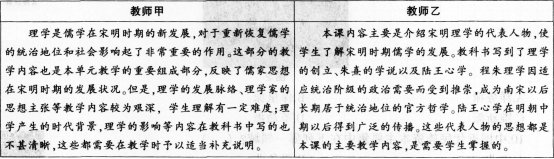 教师甲
教师乙
理学是儒学在宋明时期的新发展,对于重新恢复儒学
的统治地位和社会影响起了非常重要的作用。这部分的教
学内容也是本单元教学的重要组成部分,反映了儒家思想
在宋明时期的发展状况。但是,理学的发展脉络、理学家的
思想主张等教学内容较为艰深,学生理解有一定难度;理
学产生的时代背景,理学的影响等内容在教科书中写的也
不甚清晰,这些都需要在教学时予以适当补充说明。
本课内容主要是介绍宋明理学的代表人物,使
学生了解宋明时期儒学的发展。教科书写到了理学
的创立、朱熹的学说以及陆王心学。程朱理学因适
应统治阶级的政治需要而受到推崇,成为南宋以后
长期居于统治地位的官方哲学。陆王心学在明朝中
期以后得到广泛的传播。这些代表人物的思想都是
本课的主要教学内容,是需要学生掌握的。